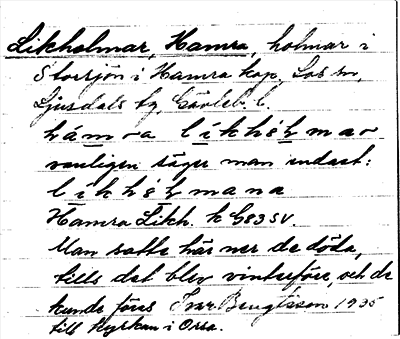 Likholmar, Hamra, holmar i
Storsjön i Hamra kap, Los sn,
Ljusdals tg, Gävleb. l.
hámra líkhólmar
vanligen säger man endast:
líkhólmana
Hamra Likh. k G83 SV.
Man satte här ner de döda,
tills det blev vinterföre, och de
kunde föras Ivar Bengtsson 1935
till kyrkan i Orsa.